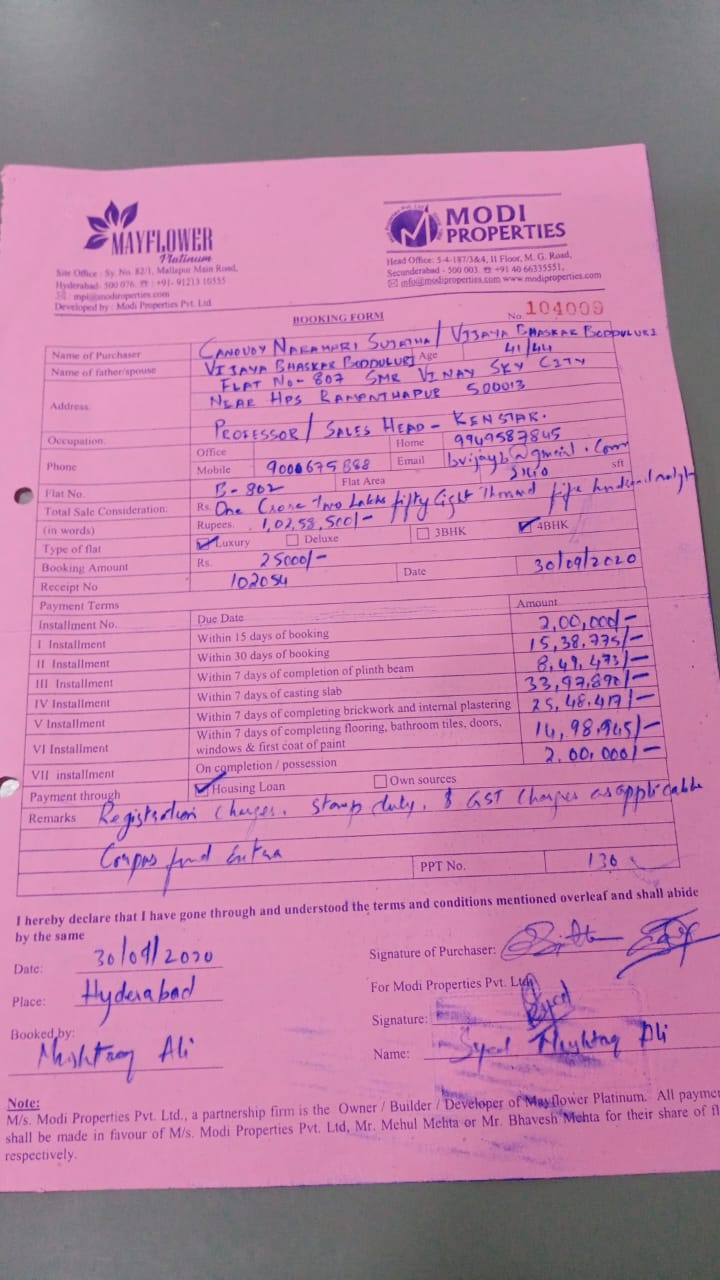 MAYFLOWER
Platinum
Site Office : Sy. No. 82/1, Mallapur Main Road,
Hyderabad- 500 076. ☎ : +91- 91213 10555
✉ : mpl@modiproperties.com
Developed by : Modi Properties Pvt. Ltd
MODI
PROPERTIES
Head Office: 5-4-187/3&4, II Floor, M. G. Road,
Secunderabad - 500 003. ☎ +91 40 66335551,
✉ info@modiproperties.com www.modiproperties.com
BOOKING FORM
No. 104009
Name of Purchaser SUJATHA / VIJAYA BHASKAR BODDULURI
Name of father/spouse VIJAYA BHASKAR BODDULURI Age 41/44
Address FLAT No- 807 SMR VINAY SKY CITY
NEAR HPS RAMANTHAPUR 500013
Occupation: PROFESSOR / SALES HEAD - KENSTAR.
Phone Office Home 9949587845
Mobile 9000675888 Email bvijayb@gmail.com
Flat No. B-802 Flat Area sft
Total Sale Consideration: Rs. One Crore Two Lakhs fifty Eight Thousand five hundred
(in words) Rupees. 1,02,58,500/-
Type of flat Luxury Deluxe 3BHK 4BHK
Booking Amount Rs. 25000/-
Receipt No 102054 Date 30/09/2020
Payment Terms
Installment No. Due Date Amount
I Installment Within 15 days of booking 2,00,000/-
II Installment Within 30 days of booking 15,38,775/-
III Installment Within 7 days of completion of plinth beam 8,49,473/-
IV Installment Within 7 days of casting slab
V Installment Within 7 days of completing brickwork and internal plastering 25,48,417/-
VI Installment Within 7 days of completing flooring, bathroom tiles, doors, windows & first coat of paint 14,98,945/-
VII installment On completion / possession 2,00,000/-
Payment through Housing Loan Own sources
Remarks Registration charges, stamp duty, & GST Charges as applicable
Corpus fund Extra
PPT No. 136
I hereby declare that I have gone through and understood the terms and conditions mentioned overleaf and shall abide
by the same
Date: 30/09/2020
Signature of Purchaser:
Place: Hyderabad
For Modi Properties Pvt. Ltd.
Signature:
Booked by:
Mushtaq Ali
Name: Syed Mushtaq Ali
Note:
M/s. Modi Properties Pvt. Ltd., a partnership firm is the Owner / Builder / Developer of Mayflower Platinum. All payme
shall be made in favour of M/s. Modi Properties Pvt. Ltd, Mr. Mehul Mehta or Mr. Bhavesh Mehta for their share of fl
respectively.